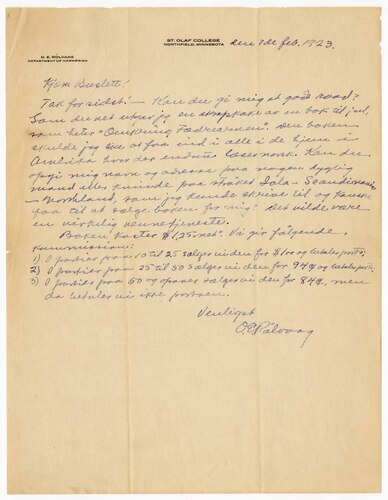 ST. OLAF COLLEGE
NORTHFIELD, MINNESOTA
O. E. RÖLVAAG
DEPARTMENT OF NORWEGIAN
den 7de feb. 1923.
Kjære Buslett!
Tak for sidst! — Kan du gi mig et godt raad?
Som du vet utgav jeg en av en bok til jul,
som heter "Omkring Fædrearven". Den boken
skulde jeg like at faa ind i alle de hjem i
Amerika hvor der endnu læses norsk. Kan du
opgi mig navn og adresse paa nogen dygtig
mand eller kvinde paa strøket Iola - Scandinavia
- Northland, som jeg kunde skrive til og kanske
faa til at sælge boken for mig? Det vilde være
en virkelig vennetjeneste.
Boken koster $1.25 net. Vi gir følgende
kommission:
1) I partier paa 10 til 25 sælger vi den for $1.00 og betaler porto;
2) I partier paa 25 til 50 sælger vi den for 94¢ og betaler porto,
3) I partier paa 50 og opover sælger vi den for 84¢, men
da betaler vi ikke portoen.
Venligst
O. E. Rölvaag